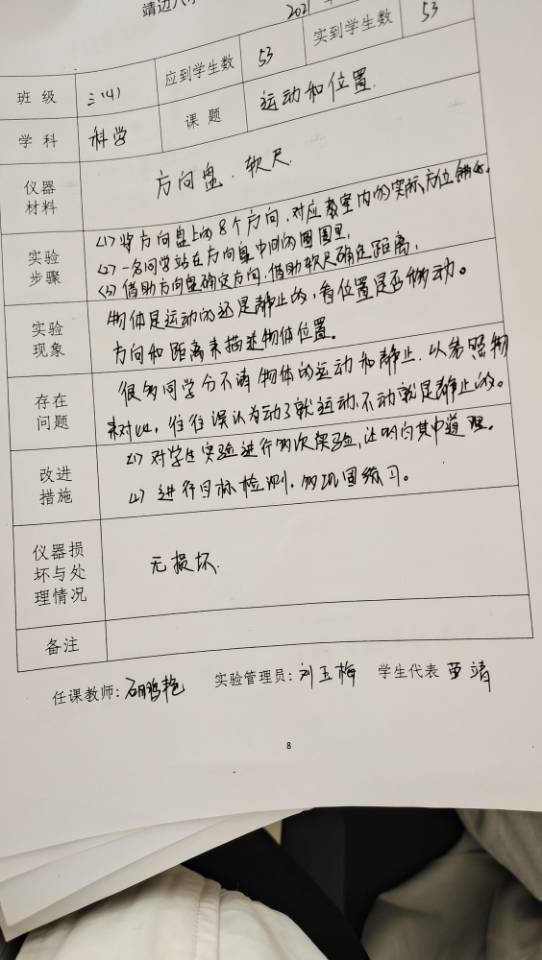 靖边八
2021
班级 三(4) 应到学生数 53 实到学生数 53
学科 科学 课题 运动和位置
仪器材料 方向盘、软尺
实验步骤
(1) 将方向盘上的8个方向,对应教室内的实际方位
(2) 一名同学站在方向盘中间的圆圈里,
(3) 借助方向盘确定方向,借助软尺确定距离,
实验现象
物体是运动的还是静止的,看位置是否移动。
方向和距离来描述物体位置。
存在问题
很多同学分不清物体的运动和静止,以参照物
来对比,往往误认为动了就运动,不动就是静止的。
改进措施
(1) 对学生实验进行多次实验,让明白其中道理。
(2) 进行目标检测,多巩固练习。
仪器损坏与处理情况
无损坏
备注
任课教师: 实验管理员:刘玉梅 学生代表 靖
8